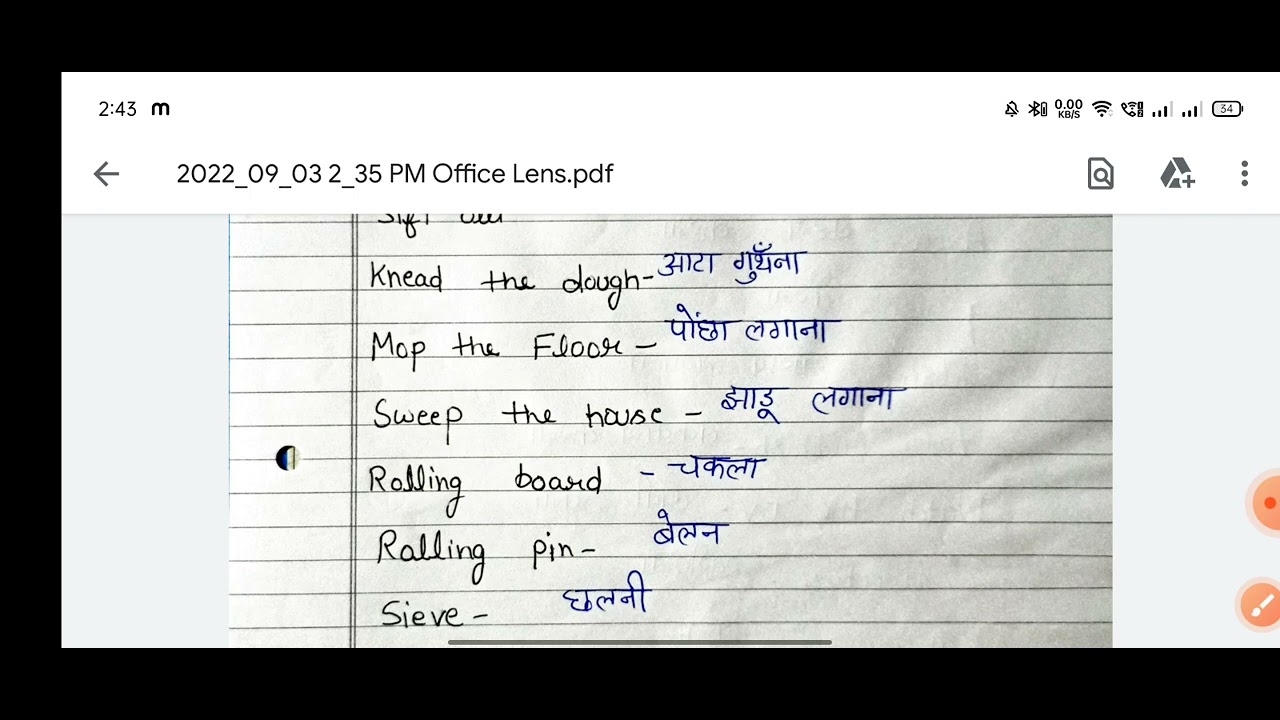 2:43 m 0.00 KB/S 34
2022_09_03 2_35 PM Office Lens.pdf
Knead the dough- आटा गुथँना
Mop the Floor - पोंछा लगाना
Sweep the house - झाडू लगाना
Rolling board - चकला
Rolling pin- बेलन
Sieve- छलनी